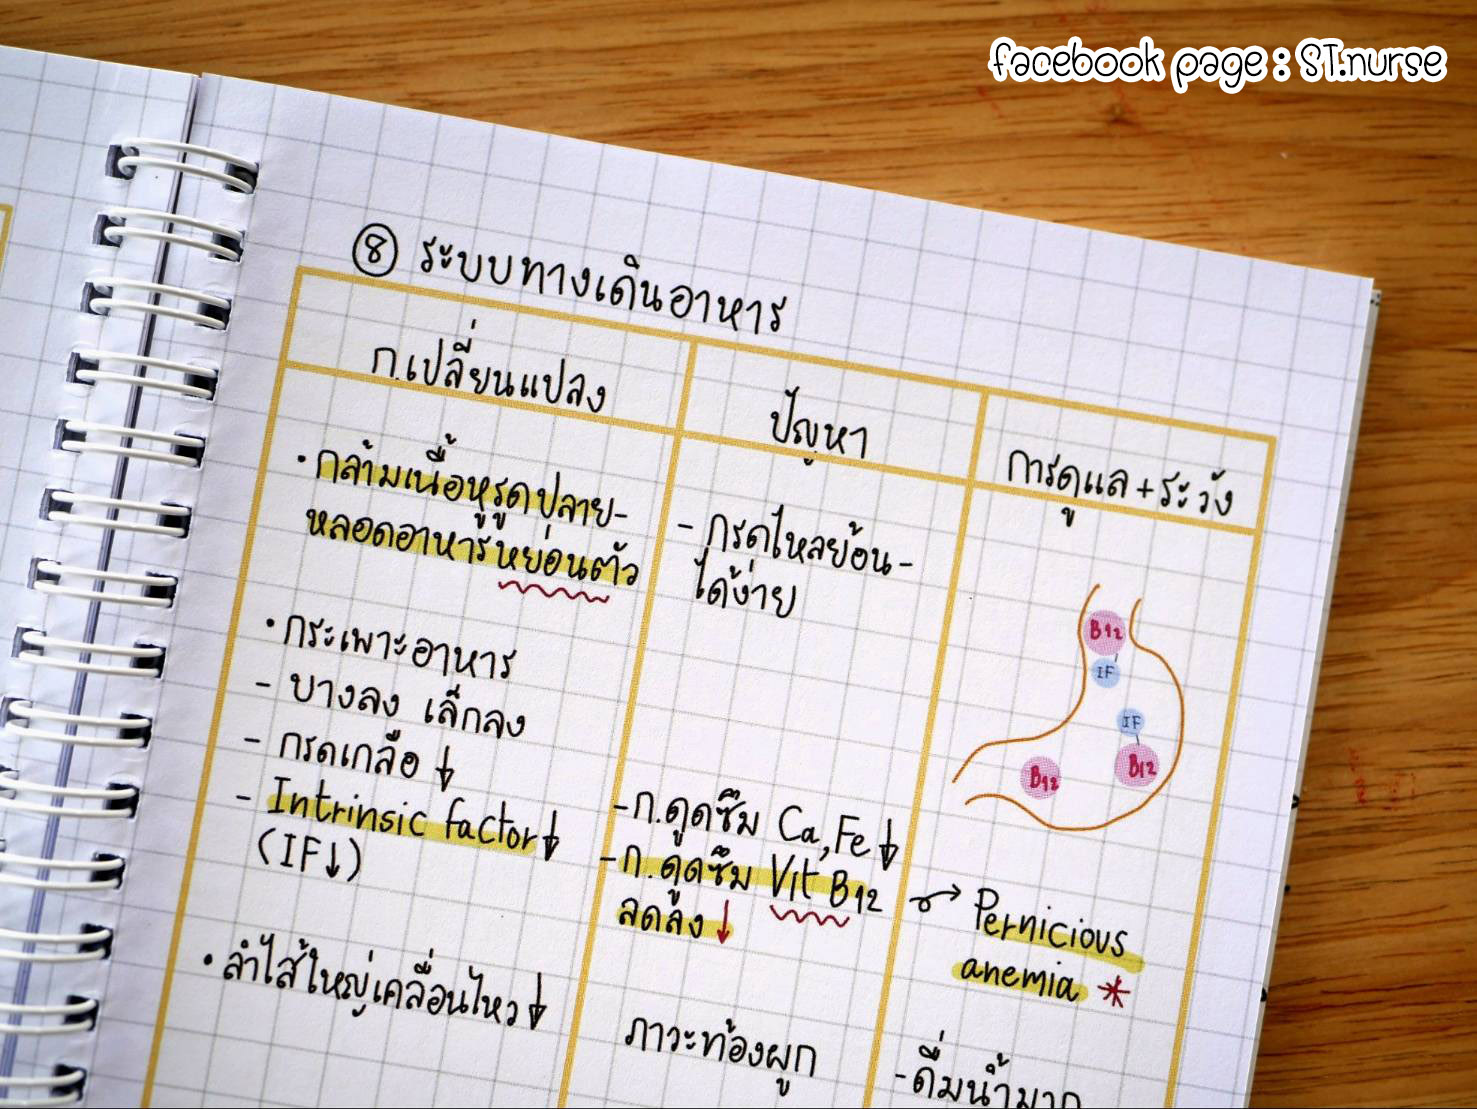 facebook page : ST.nurse
⑧ ระบบทางเดินอาหาร
ก.เปลี่ยนแปลง
ปัญหา
การดูแล+ระวัง
• กล้ามเนื้อหูรูดปลาย-
หลอดอาหารหย่อนตัว
- กรดไหลย้อน-
ได้ง่าย
• กระเพาะอาหาร
- บางลง เล็กลง
- กรดเกลือ ↓
- Intrinsic factor↓
(IF↓)
- ก.ดูดซึม Ca, Fe↓
- ก.ดูดซึม Vit B12
ลดลง↓
B12
IF
IF
B12
B12
→ Pernicious
anemia *
• ลำไส้ใหญ่เคลื่อนไหว↓
ภาวะท้องผูก
- ดื่มน้ำมาก